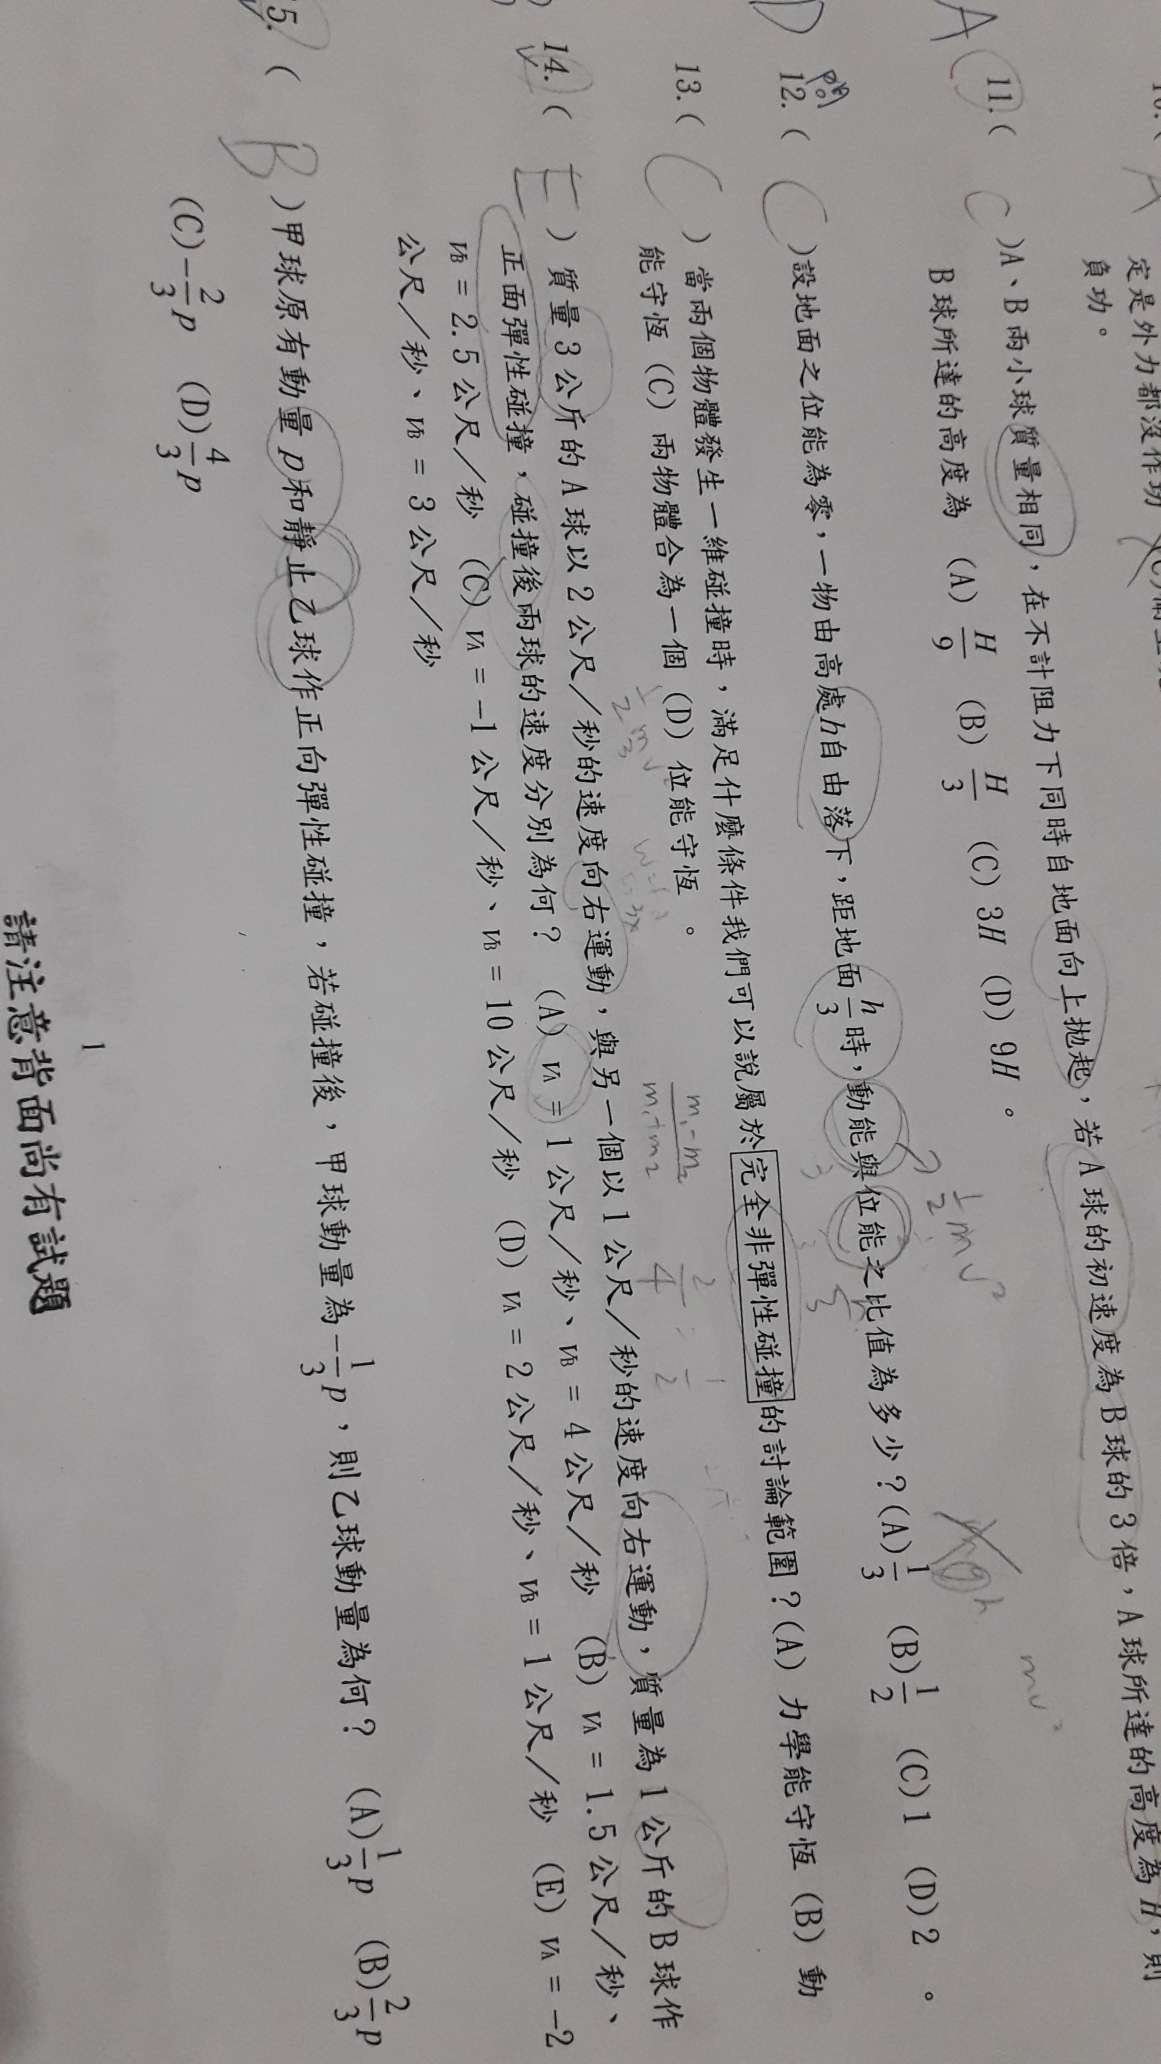 10.( A
定是外力都沒作功
負功。
A 11.( C )A、B兩小球質量相同，在不計阻力下同時自地面向上拋起，若A球的初速度為B球的3倍，A球所達的高度為H，則
B球所達的高度為 (A) H/9 (B) H/3 (C) 3H (D) 9H。
1/2 mv²
mv²
D 12.( C )設地面之位能為零，一物由高處h自由落下，距地面h/3時，動能與位能之比值為多少？(A)1/3 (B)1/2 (C)1 (D)2 。
13.( C ) 當兩個物體發生一維碰撞時，滿足什麼條件我們可以說屬於完全非彈性碰撞的討論範圍？(A) 力學能守恆 (B) 動
能守恆 (C) 兩物體合為一個 (D) 位能守恆 。
m₁-m₂/m₁+m₂ 2/4 : 1/2
14.( E ) 質量3公斤的A球以2公尺／秒的速度向右運動，與另一個以1公尺／秒的速度向右運動，質量為1公斤的B球作
正面彈性碰撞，碰撞後兩球的速度分別為何？ (A) vA = 1公尺／秒、vB = 4公尺／秒 (B) vA = 1.5公尺／秒、
vB = 2.5公尺／秒 (C) vA = -1公尺／秒、vB = 10公尺／秒 (D) vA = 2公尺／秒、vB = 1公尺／秒 (E) vA = -2
公尺／秒、vB = 3公尺／秒
5.( B )甲球原有動量p和靜止乙球作正向彈性碰撞，若碰撞後，甲球動量為-1/3p，則乙球動量為何？ (A)1/3p (B)2/3p
(C)-2/3p (D)4/3p
1
請注意背面尚有試題